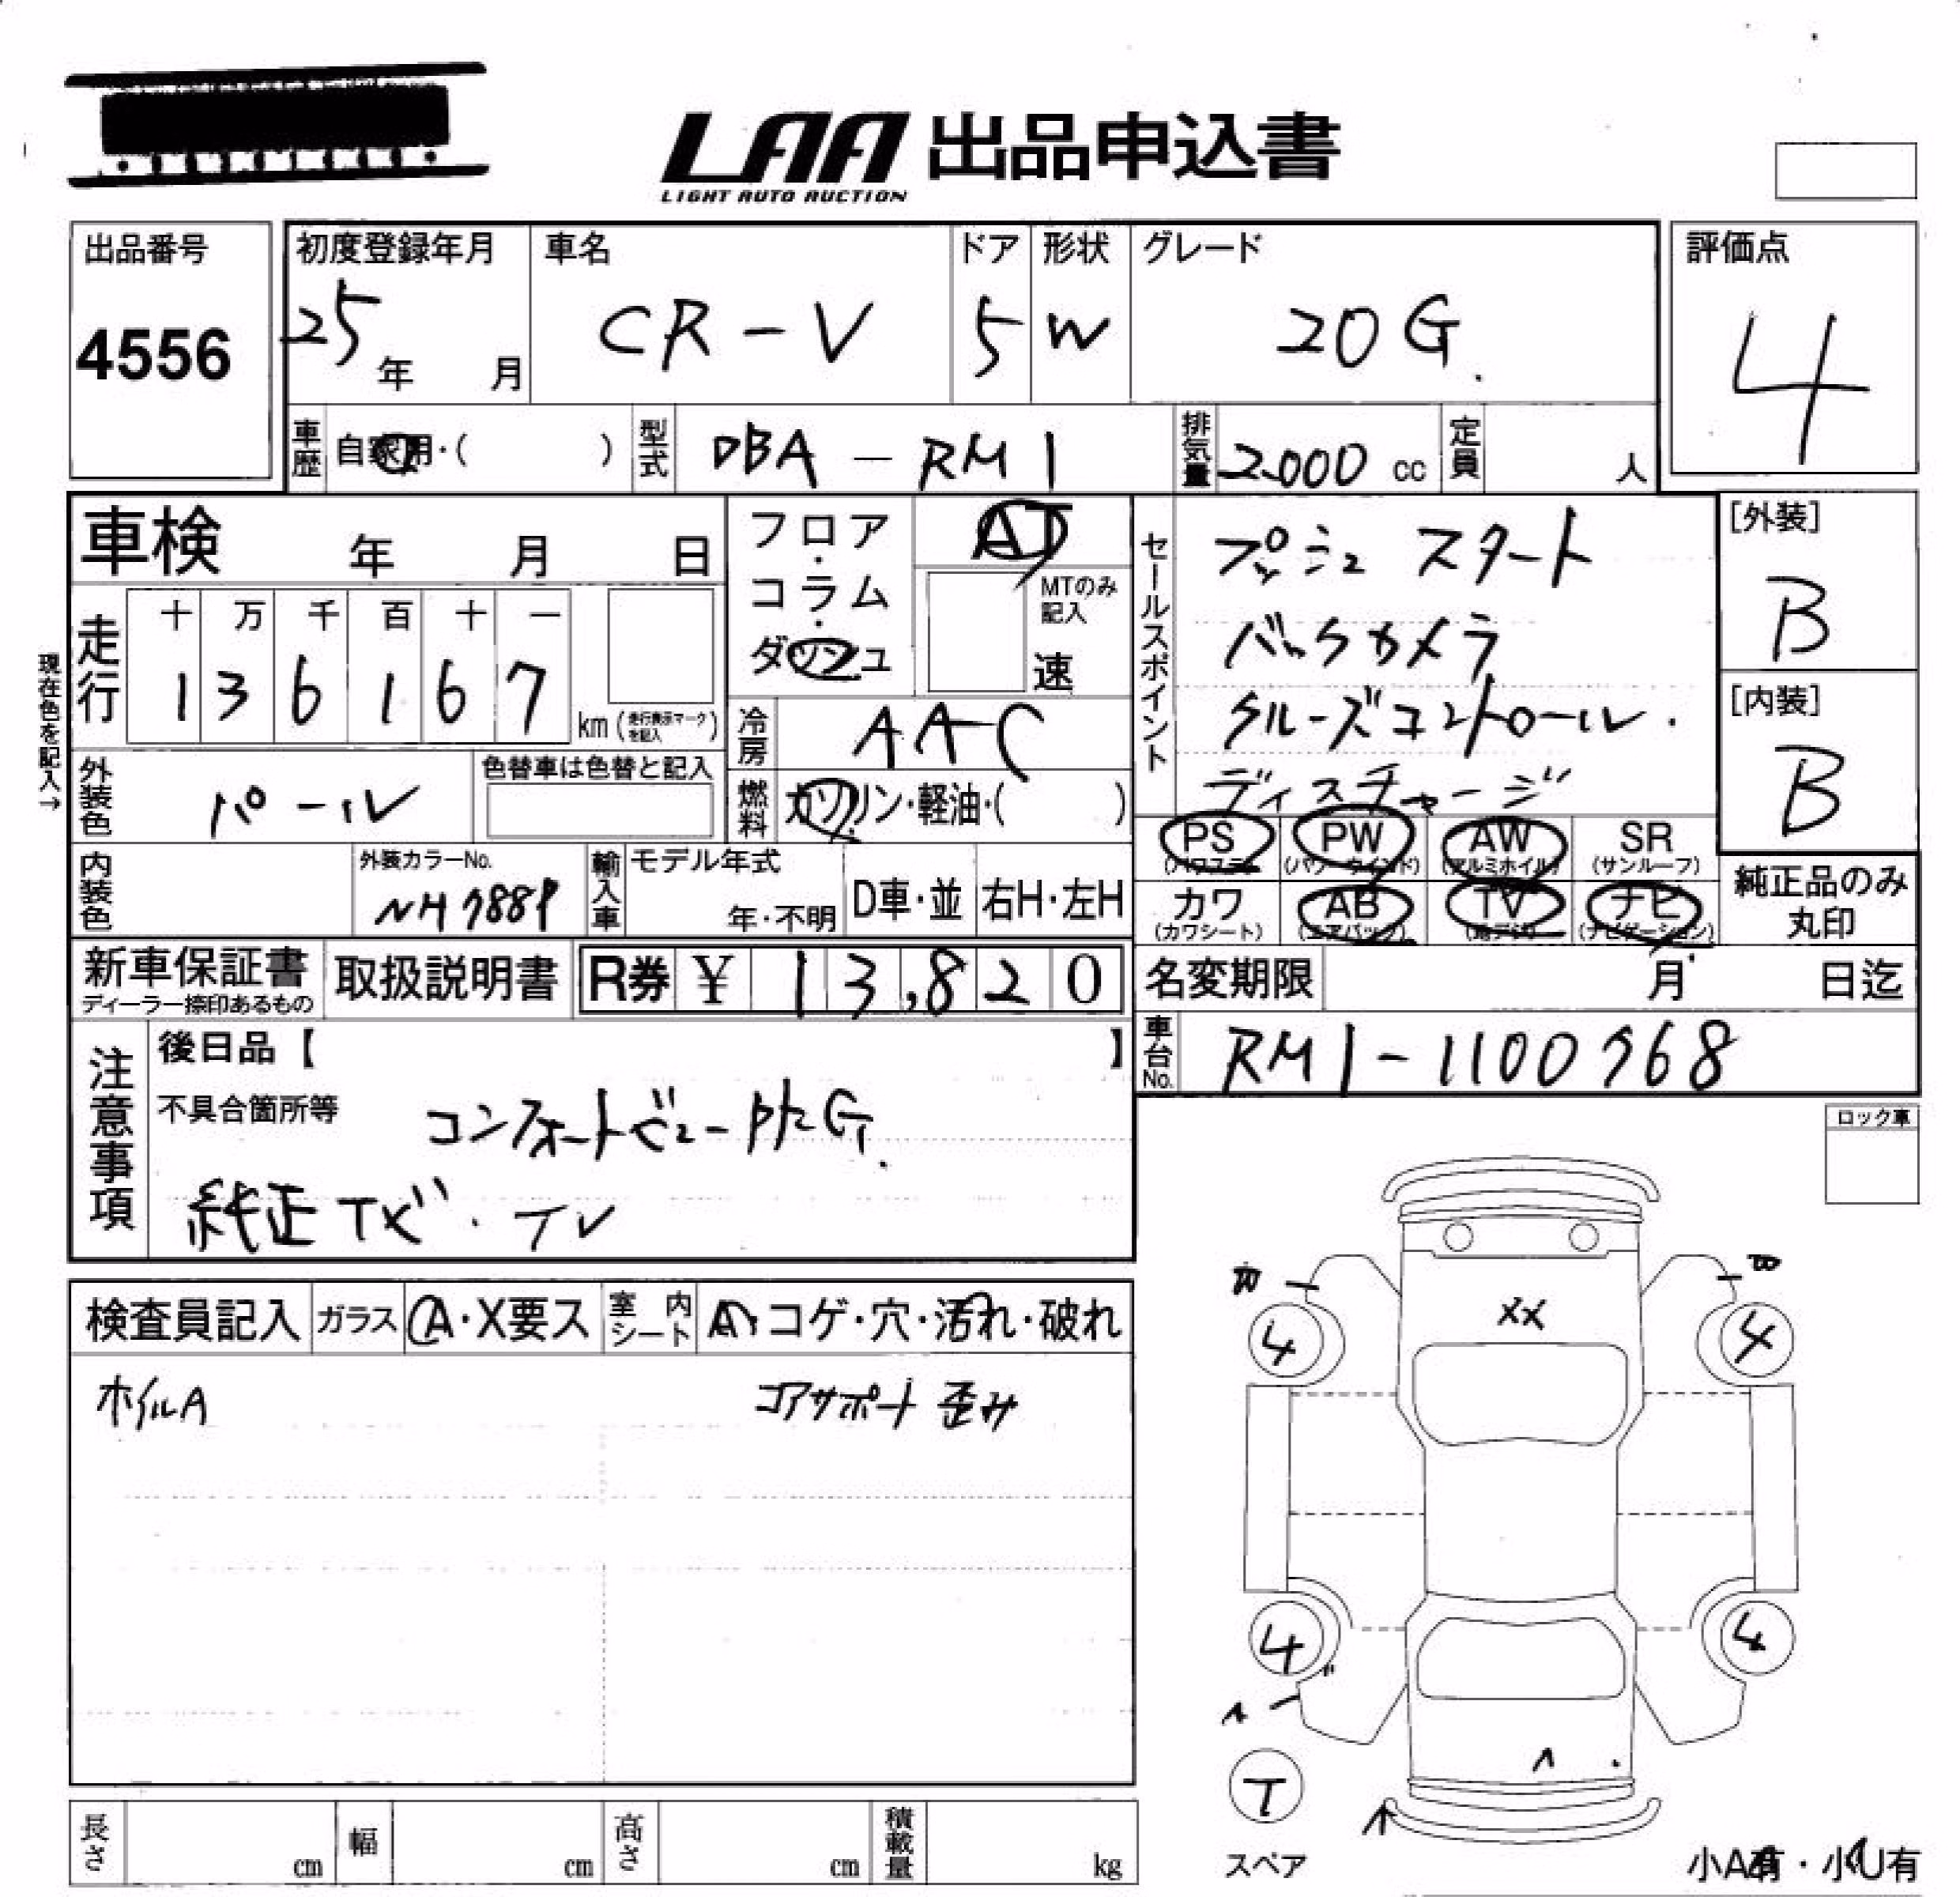 LAA 出品申込書
LIGHT AUTO AUCTION
出品番号
4556
初度登録年月
25年 月
車名
CR-V
ドア
5
形状
W
グレード
20G.
評価点
4
車歴
自家用・( )
型式
DBA-RM1
排気量
2000 cc
定員
人
車検 年 月 日
フロア・コラム・ダッシュ
AT
MTのみ記入
速
セールスポイント
プッシュスタート
バックカメラ
クルーズコントロール.
ディスチャージ
[外装]
B
[内装]
B
現在色を記入→
走行
十 万 千 百 十 一
1 3 6 1 6 7
km(走行表示マークを記入)
冷房
AAC
外装色
パール
色替車は色替と記入
燃料
ガソリン・軽油・( )
PS (パワステ)
PW (パワーウインド)
AW (アルミホイル)
SR (サンルーフ)
内装色
外装カラーNo.
NH788P
輸入車
モデル年式
年・不明
D車・並
右H・左H
カワ (カワシート)
AB (エアバック)
TV (地デジ)
ナビ (ナビゲーション)
純正品のみ丸印
新車保証書
ディーラー捺印あるもの
取扱説明書
R券 ¥ 13,820
名変期限 月 日迄
車台No.
RM1-1100768
注意事項
後日品【 】
不具合箇所等
コンフォートビュー
純正ナビ・TV
ロック車
検査員記入
ガラス
A・X要ス
室内シート
A・コゲ・穴・汚れ・破れ
ホイルA
コアサポート 歪み
XX
4
4
4
4
T
スペア
小A有・小U有
長さ cm
幅 cm
高さ cm
積載量 kg